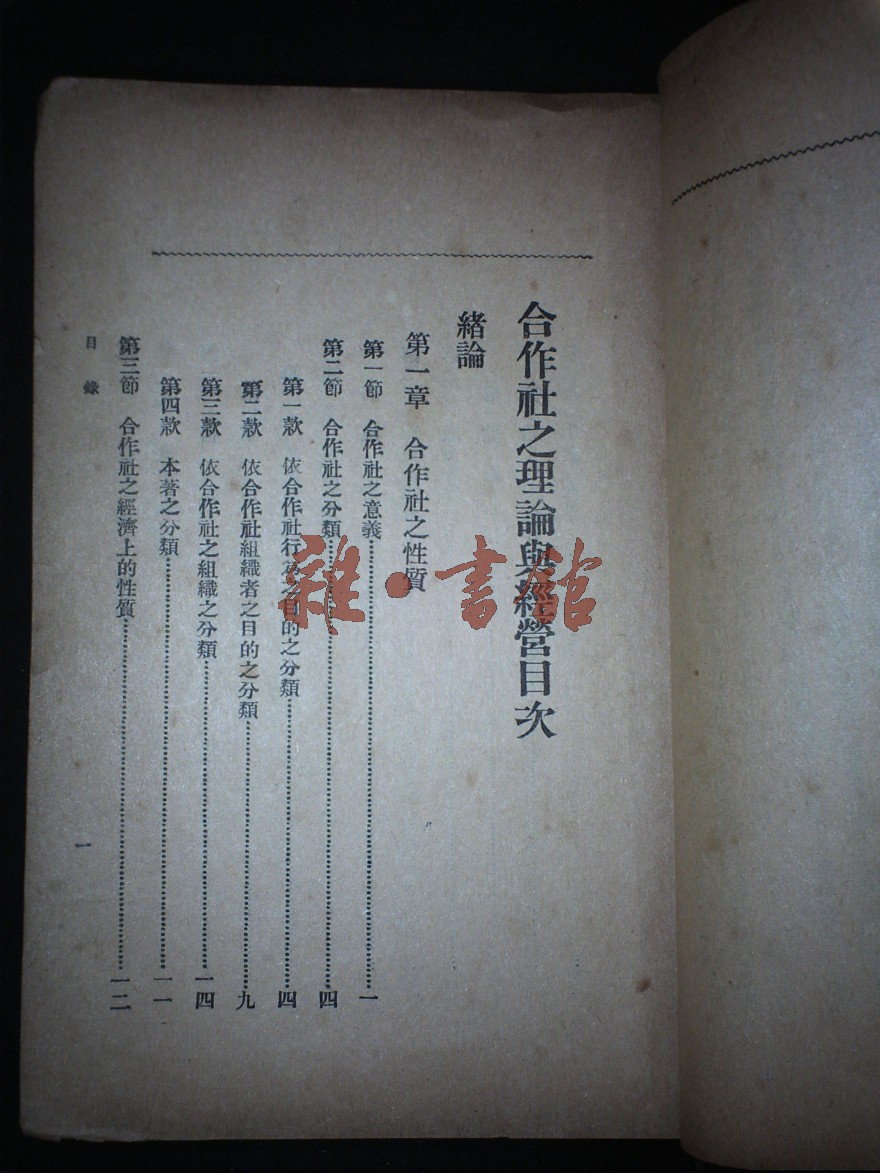 合作社之理論與經營目次
緒論
第一章　合作社之性質
第一節　合作社之意義……一
第二節　合作社之分類……四
第一款　依合作社行為之目的之分類……四
第二款　依合作社組織者之目的之分類……九
第三款　依合作社之組織之分類……一四
第四款　本著之分類……一一
第三節　合作社之經濟上的性質……一二
目錄
一
雜·書館